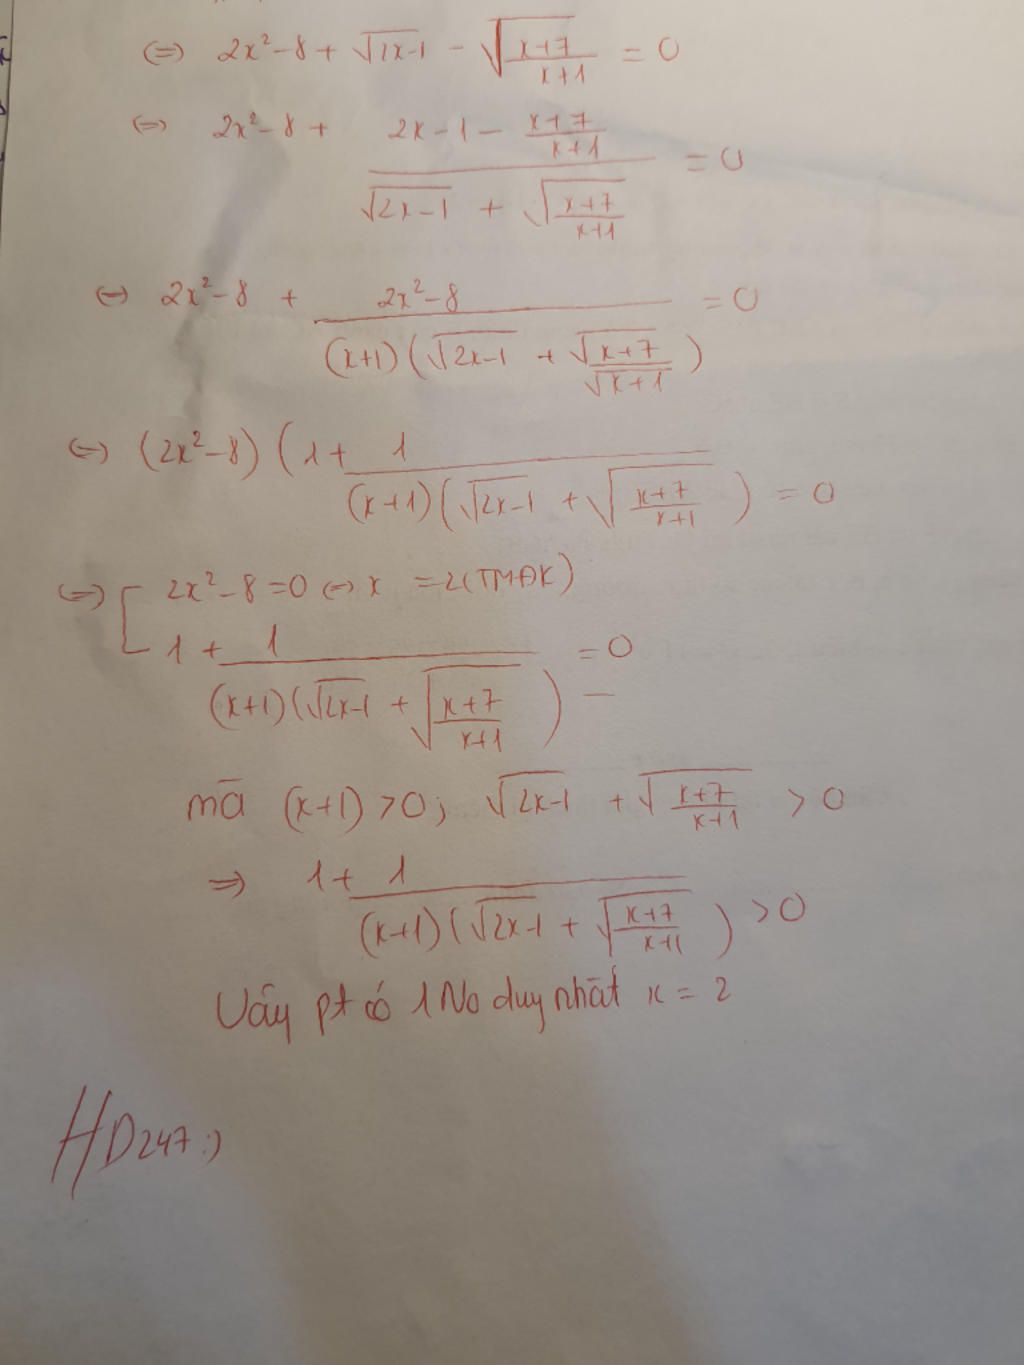 (=) 2x²-8 + √2x-1 - √(x+7)/(x+1) = 0
(=) 2x²-8 + (2x-1 - (x+7)/(x+1))/(√2x-1 + √(x+7)/(x+1)) = 0
(=) 2x²-8 + (2x²-8)/((x+1)(√2x-1 + √x+7/√x+1)) = 0
(=) (2x²-8)(1 + 1/((x+1)(√2x-1 + √(x+7)/(x+1))) = 0
(=) [ 2x²-8=0 (=) x = 2(TMĐK)
1 + 1/((x+1)(√2x-1 + √(x+7)/(x+1))) = 0
mà (x+1) >0; √2x-1 + √(x+7)/(x+1) > 0
=> 1 + 1/((x+1)(√2x-1 + √(x+7)/(x+1))) > 0
Vậy pt có 1 No duy nhất x = 2
HD247:)